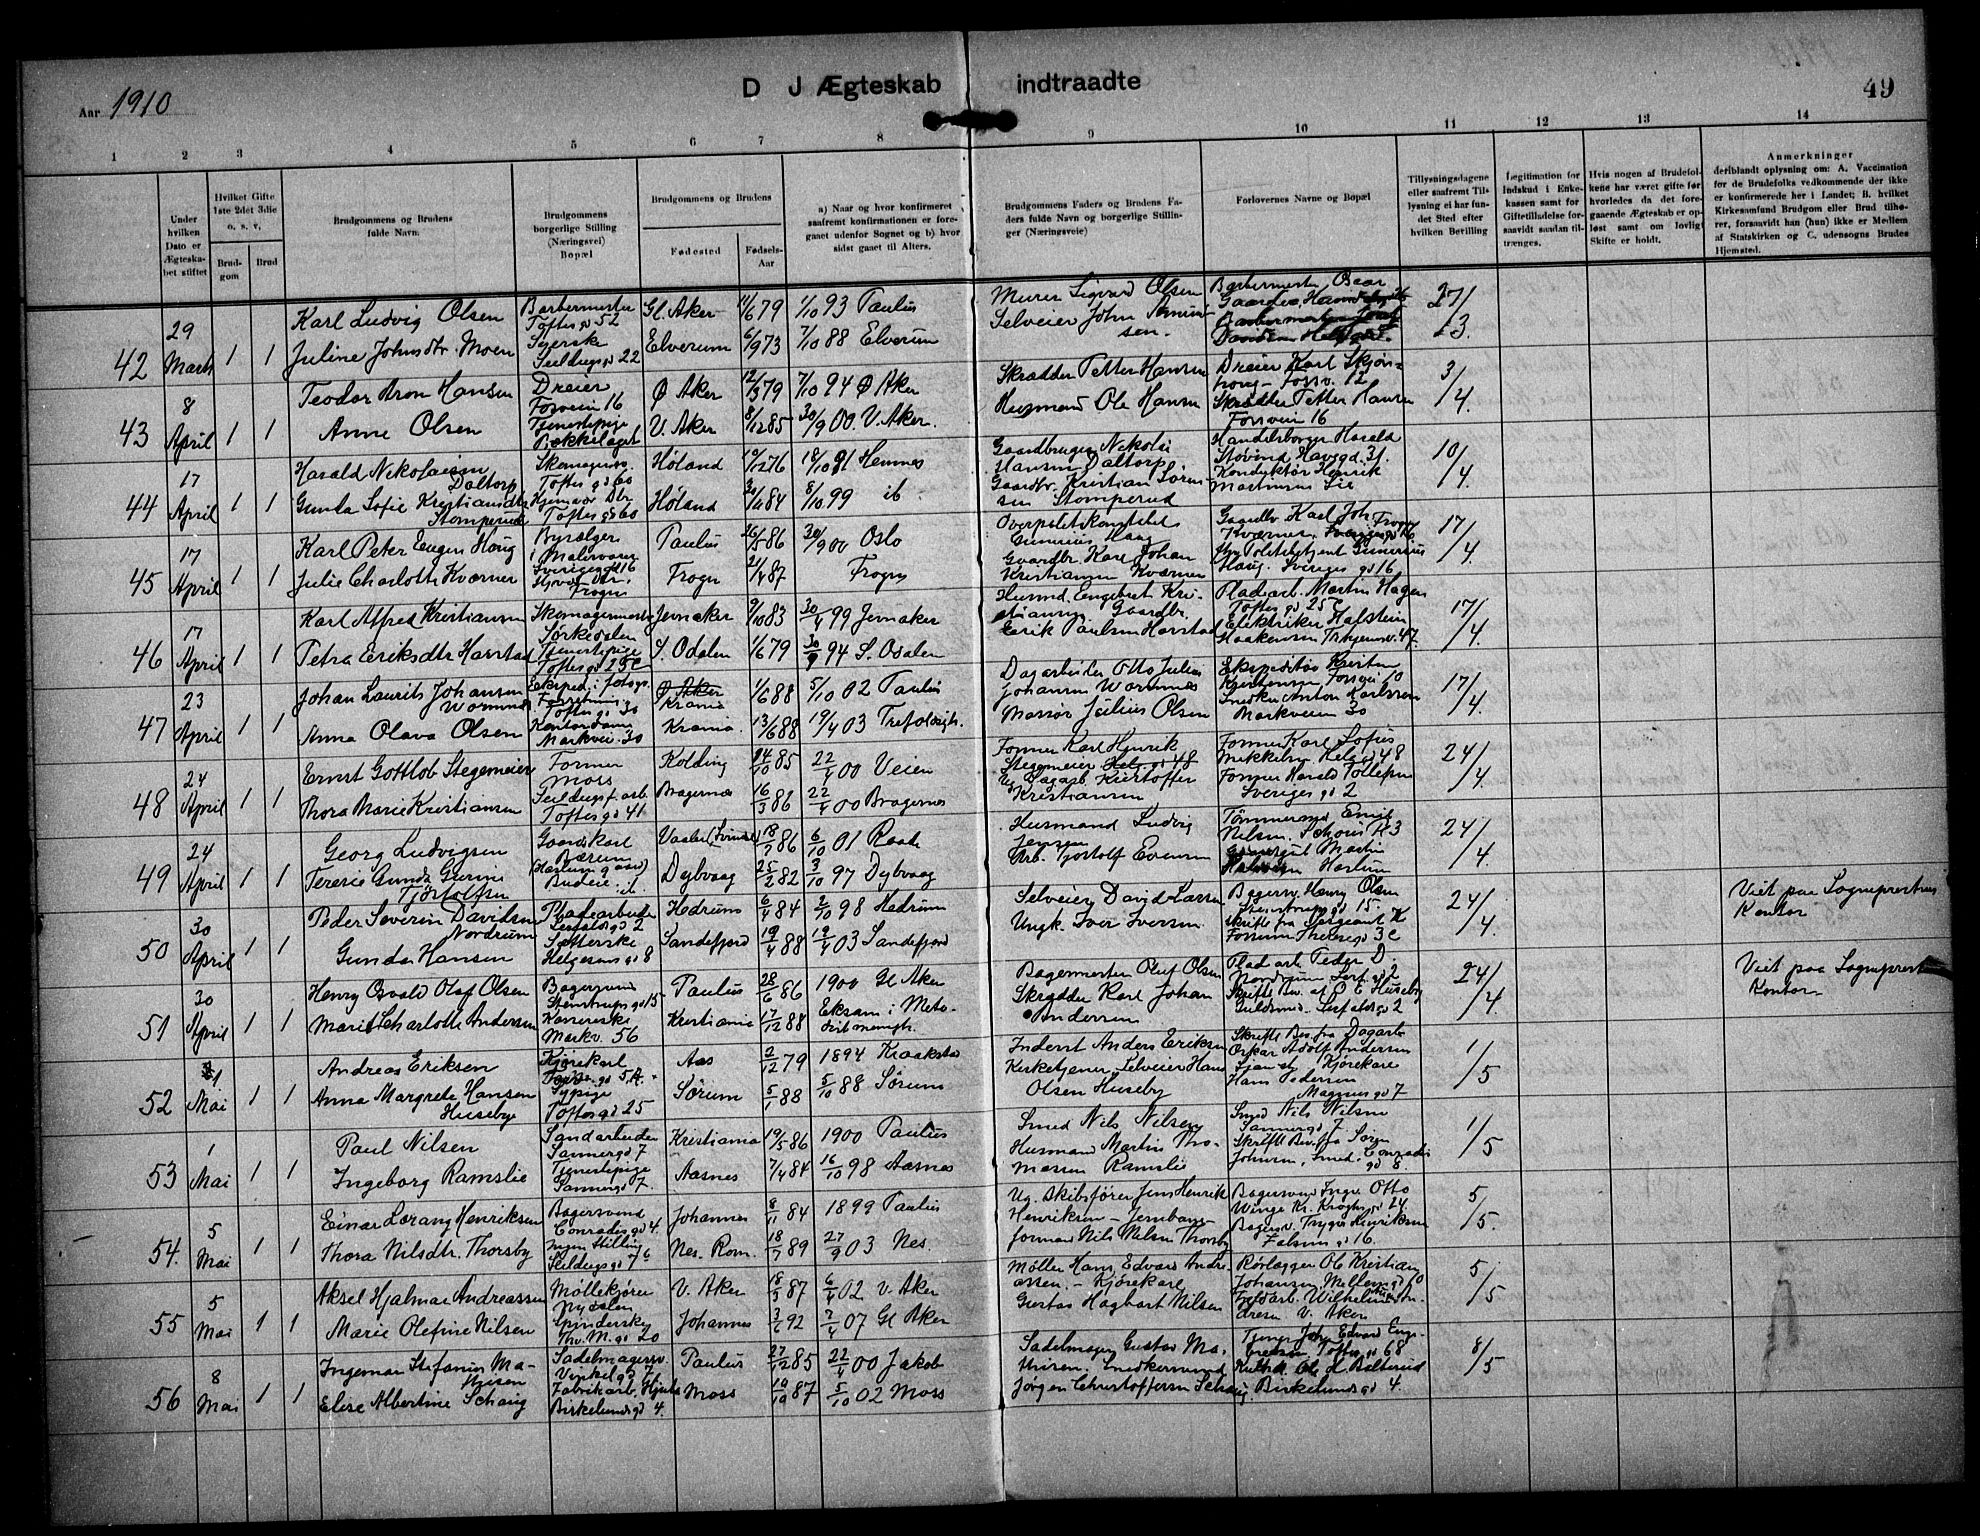 Aar 1910
D J Ægteskab indtraadte
49
1 2 3 4 5 6 7 8 9 10 11 12 13 14
Under hvilken Dato er Ægteskabet stiftet
Hvilket Gifte 1ste 2det 3die o. s. v,
Brudgom
Brud
Brudgommens og Brudens fulde Navn.
Brudgommens borgerlige Stilling (Næringsvei) Bopæl
Brudgommens og Brudens
Fødested
Fødsels-Aar
a) Naar og hvor konfirmeret saafremt konfirmationen er foregaaet udenfor Sognet og b) hvor sidst gaaet til Alters.
Brudgommens Faders og Brudens Faders fulde Navn og borgerlige Stillinger (Næringsveie)
Forlovernes Navne og Bopæl
Tillysningsdagene eller saafremt Tillysning ei har fundet Sted efter hvilken Bevilling
Lægitimation for Indskud i Enkekassen samt for Giftetilladelse forsaavidt saadan tiltrænges.
Hvis nogen af Brudefolkene har været gifte før hvorledes da det foregaaende Ægteskab er opløst samt om lovligt Skifte er holdt.
Anmerkninger
deriblandt oplysning om: A. Vaccination for de Brudefolks vedkommende der ikke er konfirmerede her i Landet; B. hvilket Kirkesamfund Brudgom eller Brud tilhører, forsaavidt han (hun) ikke er Medlem af Statskirken og C. udensogns Brudes Hjemsted.
42 29 Marts 1 1
Karl Ludvig Olsen Barbermester Toftes gd 52 Gl. Aker 11/6 79 1/10 93 Paulus Murer Sigvard Olsen 27/3.
Juline Johnsdtr. Moen Syerske Seildugsgd 22 Elverum 6/9 73 7/10 88 Elverum Selveier John
43 8 April 1 1
Teodor Aron Hansen Dreier Fossvein 16 Ø Aker 12/3 79 7/10 94 Ø Aker Skrædder Petter Hansen Dreier Karl Fossv. 12 3/4.
Anne Olsen Tjenestepige Bekkelaget V. Aker 8/12 85 30/9 00 V. Aker. Husmand Ole Hansen Skrædder Petter Hansen Fossvein 16
44 17 April 1 1
Harald Nikolaisen Daltorp Skomagersv. Toftes gd 60 Høland 19/12 76 18/10 91 Hemnes Gaardbruger Nikolai Hansen Daltorp. Handelsborger Harald Støvind Havsgd. 31. 10/4
Gunda Sofie Kristiansdtr Stomperud Hjemmev. Dtr Toftes gd 60 Høland 8/10 99 ib Gaardbr. Kristian Sørensen Stomperud Konduktør Henrik Martinsen Lie
45 17 April 1 1
Karl Peter Eugen Haug Bysælger i Malervarer Sveriges gd 16 Paulus 26/5 86 30/9 00 Oslo Overpolitikonstabel Gunerius Haug Gaardbr Karl Joh. Kværner Frogn 17/4.
Julie Charlotte Kværner Hjemv. Dtr. Frogn Frogn 21/4 87 Frogn Gaardbr. Karl Johan Kristiansen Kværner Politibetjent Gunerius Haug. Sveriges gd 16
46 17 April 1 1
Karl Alfred Kristiansen Skomagermester Sørkedalen Jevnaker 9/10 83 30/4 99 Jevnaker Husmd. Engebret Kristiansen Gaardbr. Pladearb. Martin Hagen Toftes gd 25 C 17/4.
Petra Eriksdtr Harstad Tjenestepige Toftes gd 25 C S. Odalen 1/6 79 30/9 94 S. Odalen Erik Paulsen Harstad Elektriker Hafstein Haakensen 47.
47 23 April 1 1
Johan Laurits Johansen Wormnes Toftes gd 30 Ø Aker Krania 1/6 88 5/10 02 Paulus Dagarbeider Otto Julius Johansen Wormnes Ekspeditør Kristen Kristensen Fossvei 10 17/4.
Anna Olava Olsen Kontordame Markvei. 30 Krania. 13/6 88 19/4 03 Trefoldigh. Massør Julius Olsen Snedker Anton Karlssen Markveien 30
48 24 April 1 1
Ernst Gottlob Stegemeier Former Moss Kolding 24/10 85 22/4 00 Veien Former Karl Henrik Stegemeier Former Karl Sofus Mikkelsen Helg. gd 48 24/4.
Thora Marie Kristiansen Seildugsf. arb. Toftes gd 41 Bragernes 16/3 86 22/4 00 Bragernes Ug Dagarb Kristoffer Kristiansen Former Harald Tollefsen Sveriges gd 2
49 24 April 1 1
Georg Ludvigsen Gaardskarl Bærum (Haslum gaard) Vaaler (Svinndal) 18/7 86 6/10 01 Raade Husmand Ludvig Jensen Tømmermand Emil Nilsen. Schous Pl 3 24/4.
Terese Gunda Gurine Tjøstolfsen Budeie ib. Dybvaag 25/2 82 3/10 97 Dybvaag Arb. Tjøstolf Evensen Martin Haslum
50 30 April 1 1
Peder Severin Davidsen Nordrum Pladearbeider Leirfaldsgd 2 Hedrum 6/4 84 2/10 98 Hedrum Selveier David Larsen Bagersv. Henry Olsen Steenstrups gd 15. 24/4. Viet paa Sogneprestens Kontor
Gunda Hansen Sætterske Helgesens gd 8 Sandefjord 19/4 88 19/4 03 Sandefjord Ungk. Iver Iversen. Skriftl fra Sergeant K Fossum Theresegd 3 C
51 30 April 1 1
Henry Osvald Olaf Olsen Bagersvend Steenstrups gd 15 Paulus 28/6 86 1900 Gl Aker Bagermester Oluf Olsen Pladearb. Peder D. Nordrum Leirf. gd 2 24/4. Viet paa Sogneprestens Kontor
Marie Charlotte Andersen Kassererske Markv. 56 Kristiania 17/12 88 Eksam. i Metodistmenigh. Skrædder Karl Johan Andersen Skriftl Bev. af O. E. Huseby Guldsmed. Leirfaldsgd 2
52 1 Mai 1 1
Andreas Eriksen Kjørekarl Aas 2/12 79 1894 Kraakstad Inderst Anders Eriksen Skriftl Bev fra Dagarb. Oskar Adolf Andersen 1/5
Anna Margrete Hansen Husebye Sypige Toftes gd 25 Sørum 5/1 88 5/10 88 Sørum Kirketjener, Selveier Hans Olsen Huseby Kjørekarl Hans Pedersen Magnus gd 7
53 1 Mai 1 1
Paul Nilsen Sandarbeider Sannergd 7 Kristiania 19/5 86 1900 Paulus Smed Nils Nilsen Smed Nils Nilsen Sannergd 7. 1/5
Ingeborg Ramslie Tjenestepige Sannergd 7. Aasnes 7/4 84 16/10 98 Aasnes Husmand Martin Thomassen Ramslie Skriftl Bev. fra Søren Johnsen, Smed. Conradis gd 8.
54. 5 Mai 1 1
Einar Lorang Henriksen Bagersvend Conradis gd 4. Johannes 8/11 84 1899 Paulus Ug. Skibsfører Jens Henrik Henriksen Bagersvend Inge Otto Winge Kr. Kroghs gd 24. 5/5.
Thora Nilsdtr. Thorsby Ingen Stilling Seildugs gd 7 b Nes. Rom. 18/7 89 27/9 03 Nes. Jernbaneformand Nils Nilsen Thorsby Bagersv. Trygve Henriksen Falsens gd 16.
55 5 Mai 1 1
Aksel Hjalmar Andreassen Møllekjører Nydalen V. Aker 18/3 87 6/4 02 V. Aker Møller Hans Edvard Andreassen. Rørlægger Ole Kristian Johansen 5/5
Marie Olefine Nilsen Spinderske Thv. M. gd 20 Johannes 3/6 92 7/4 07 Gl Aker Kjørekarl Gustav Hagbart Nilsen Fabarb. Wilhelm Andresen V. Aker
56 8 Mai 1 1
Ingemar Stefanius Mathisen Sadelmagersv. Vinkelgd 7 Paulus 27/12 85 22/4 00 Jakob Sadelmager Gustav Mathisen. Tjener Joh. Edvard Engebretsen Toftes gd 68 8/5
Elise Albertine Schaug Fabrikarb. Hjula Birkelunds gd 4. Moss 10/10 87 5/10 02 Moss Snedkersvend Jørgen Christoffersen Schaug. Birkelunds gd 4.